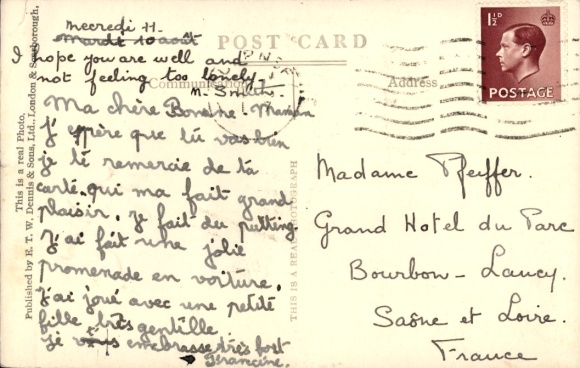 mecredi 11.
Mardi 10 août
POST CARD
I hope you are well and
not feeling too lonely -
M. Smith.
Communication
Address
1½D
POSTAGE
Ma chère Bonne-Maman
J'espère que tu vas bien
je te remercie de ta
carte qui ma fait grand
plaisir. je fait du putting.
J'ai fait une jolie
promenade en voiture.
j'ai joué avec une petite
fille très gentille
je vous embrasse très fort
Francine.
Madame Pfeiffer.
Grand Hotel du Parc
Bourbon - Lancy.
Saône et Loire.
France
This is a real Photo.
Published by E. T. W. Dennis & Sons, Ltd., London & Scarborough.
THIS IS A REAL PHOTOGRAPH